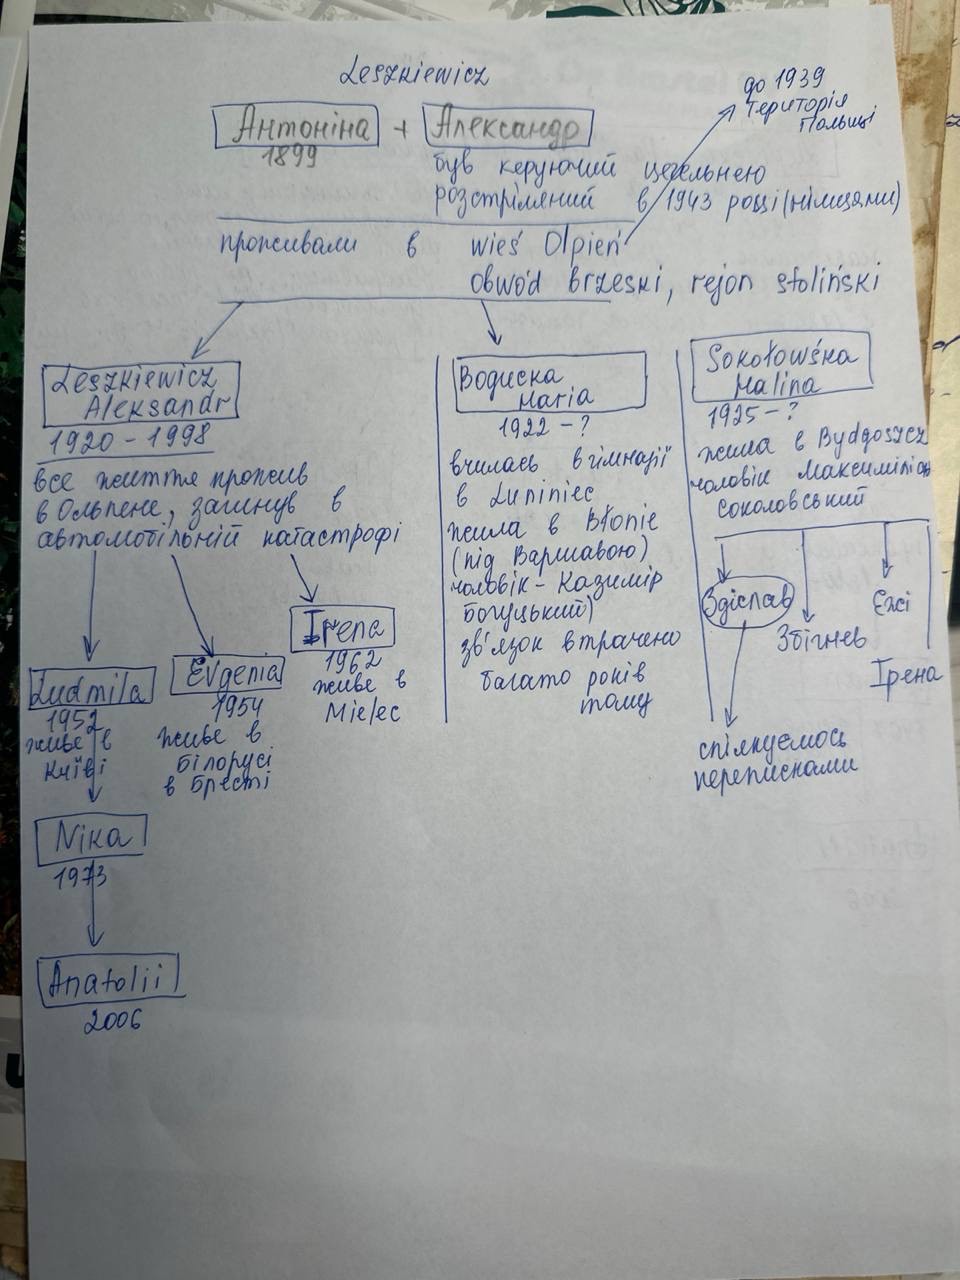 Leszkiewicz
до 1939
територія
Польщі
Антоніна + Александр
1899
був керуючий цегельнею
розстріляний в 1943 році (німцями)
проживали в wieś Olpień
obwód brzeski, rejon stoliński
Leszkiewicz
Aleksandr
1920 - 1998
все життя прожив
в Ольпене, загинув в
автомобільній катастрофі
Ludmila
1952
живе в
Київі
Evgenia
1954
живе в
Білорусі
в Бресті
Irena
1962
живе в
Mielec
Nika
1973
Anatolii
2006
Maria
1922 - ?
вчилась в гімназії
в Luniniec
жила в Błonie
(під Варшавою)
чоловік - Казимір
Богуцький)
зв'язок втрачено
багато років
тому
Sokołowśka
Halina
1925 - ?
жила в Bydgoszcz
чоловік Максиміліан
Соколовський
Здіслав
Збігнев
Ежі
Ірена
спілкуємось
переписками